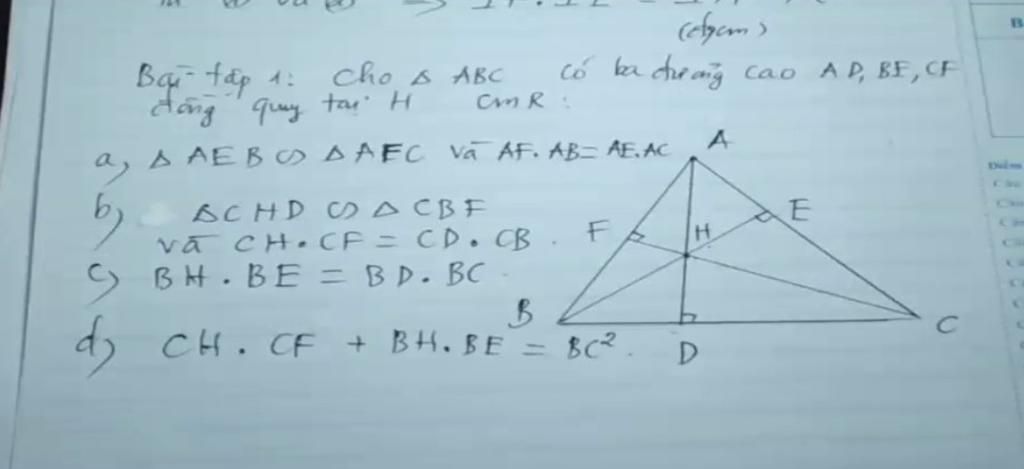 (đpcm)
Bài tập 1: Cho Δ ABC có ba đường cao AD, BE, CF
đồng quy tại H CmR:
a, Δ AEB ∽ Δ AFC và AF. AB = AE. AC
b, ΔCHD ∽ Δ CBF
và CH. CF = CD. CB.
c, BH. BE = BD. BC.
d, CH. CF + BH. BE = BC².
A
E
F
H
B
C
D
B
Điểm